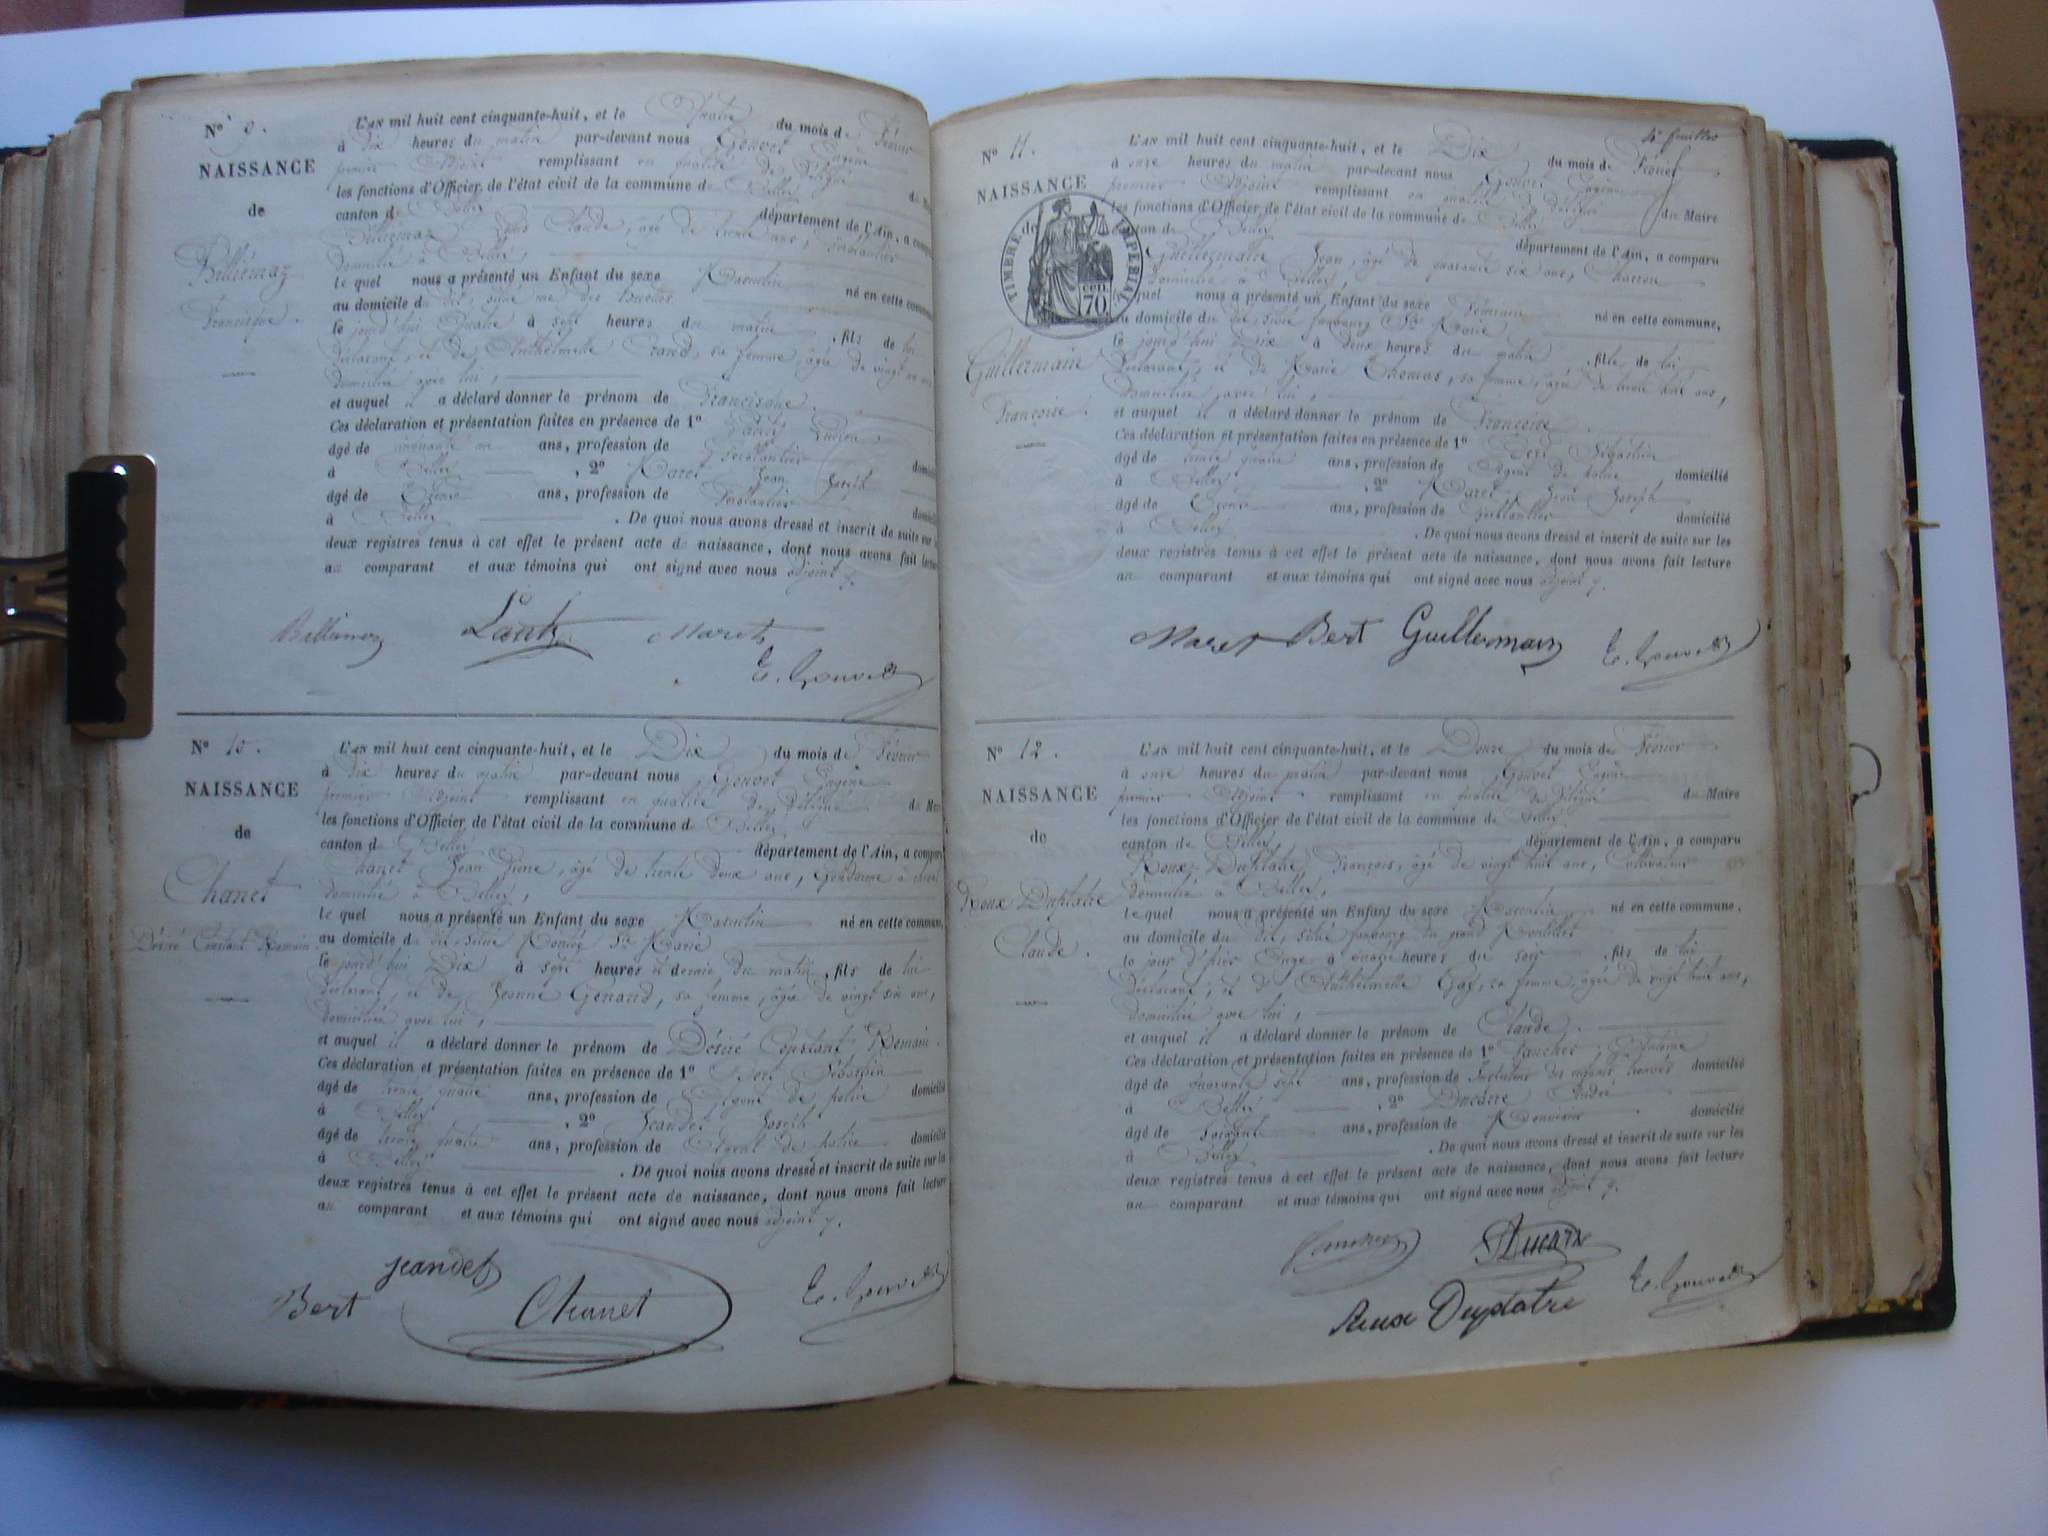 N° 9.
NAISSANCE
de
Billiemaz
Francisque.
L'AN mil huit cent cinquante-huit, et le Quatre du mois de Février
à dix heures du matin par-devant nous Gouvet Eugène
premier Adjoint remplissant en qualité de Délégué
les fonctions d'Officier de l'état civil de la commune de Belley du
canton de Belley département de l'Ain, a comparu
Billiemaz Claude, âgé de trente ans,
domicilié à Belley,
le quel nous a présenté un Enfant du sexe Masculin
au domicile du dit, situé rue des né en cette commune
le jourd'hui Quatre à sept heures du matin, fils de lui
déclarant, et de Anthelmette sa femme, âgée de vingt
domiciliée avec lui,
et auquel il a déclaré donner le prénom de Francisque.
Ces déclaration et présentation faites en présence de 1°
âgé de cinquante ans, profession de Ferblantier
à Belley, 2° Maret Jean Joseph
âgé de Trente ans, profession de Ferblantier
à Belley. De quoi nous avons dressé et inscrit de suite sur
deux registres tenus à cet effet le présent acte de naissance, dont nous avons fait lecture
au comparant et aux témoins qui ont signé avec nous adjoint
Billiemaz Maret
E. Gouvet
N° 10.
NAISSANCE
de
Chanet
Désiré Constant Romain.
L'AN mil huit cent cinquante-huit, et le Dix du mois de Février
à dix heures du matin par-devant nous Gouvet Eugène
premier Adjoint remplissant en qualité de Délégué du
les fonctions d'Officier de l'état civil de la commune de Belley
canton de Belley département de l'Ain, a comparu
Chanet Jean Pierre, âgé de trente deux ans, Gendarme à cheval
domicilié à Belley,
le quel nous a présenté un Enfant du sexe Masculin né en cette commune,
au domicile du dit, situé Ste Marie
le jourd'hui Dix à sept heures et demie du matin, fils de lui
déclarant, et de Jeanne Genand, sa femme, âgée de vingt six ans,
domiciliée avec lui,
et auquel il a déclaré donner le prénom de Désiré Constant Romain.
Ces déclaration et présentation faites en présence de 1° Bert Sébastien
âgé de trente quatre ans, profession de Agent de police domicilié
à Belley, 2° Jeandet Joseph
âgé de trente quatre ans, profession de Agent de police domicilié
à Belley. De quoi nous avons dressé et inscrit de suite sur les
deux registres tenus à cet effet le présent acte de naissance, dont nous avons fait lecture
au comparant et aux témoins qui ont signé avec nous adjoint
Jeandet
Bert Chanet E. Gouvet
4e feuillet
N° 11.
NAISSANCE
de
TIMBRE IMPERIAL
70 cen
Guillermain
Françoise.
L'AN mil huit cent cinquante-huit, et le Dix du mois de Février
à onze heures du matin par-devant nous Gouvet Eugène
premier Adjoint remplissant en qualité de Délégué du Maire
les fonctions d'Officier de l'état civil de la commune de Belley
canton de Belley département de l'Ain, a comparu
Guillermain Jean, âgé de quarante six ans, Charron
domicilié à Belley
quel nous a présenté un Enfant du sexe Féminin
au domicile du dit, situé faubourg Ste Marie né en cette commune,
le jourd'hui dix à deux heures du matin, fille de lui
Déclarant, et de Marie Thomas, sa femme, âgée de trente huit ans,
domiciliée avec lui,
et auquel il a déclaré donner le prénom de Françoise.
Ces déclaration et présentation faites en présence de 1° Bert Sébastien
âgé de trente quatre ans, profession de Agent de police domicilié
à Belley, 2° Maret Jean Joseph
âgé de Trente ans, profession de Ferblantier domicilié
à Belley. De quoi nous avons dressé et inscrit de suite sur les
deux registres tenus à cet effet le présent acte de naissance, dont nous avons fait lecture
au comparant et aux témoins qui ont signé avec nous adjoint
Maret Bert Guillermain E. Gouvet
N° 12.
NAISSANCE
de
Roux Duplatre
Claude.
L'AN mil huit cent cinquante-huit, et le Douze du mois de Février
à onze heures du matin par-devant nous Gouvet Eugène
premier Adjoint remplissant en qualité de Délégué du Maire
les fonctions d'Officier de l'état civil de la commune de Belley
canton de Belley, département de l'Ain, a comparu
Roux Duplatre François, âgé de vingt huit ans, Cultivateur
domicilié à Belley,
le quel nous a présenté un Enfant du sexe Masculin né en cette commune.
au domicile du dit, situé faubourg du grand
le jour d'hier Onze à onze heures du soir, fils de lui
déclarant, et d'Anthelmette Gay, sa femme, âgée de vingt trois ans,
domiciliée avec lui,
et auquel il a déclaré donner le prénom de Claude.
Ces déclaration et présentation faites en présence de 1° Antoine
âgé de quarante sept ans, profession de des enfants trouvés domicilié
à Belley, 2° Ducarre André
âgé de Soixante ans, profession de Menuisier domicilié
à Belley. De quoi nous avons dressé et inscrit de suite sur les
deux registres tenus à cet effet le présent acte de naissance, dont nous avons fait lecture
au comparant et aux témoins qui ont signé avec nous adjoint
E. Gouvet
Roux Duplatre